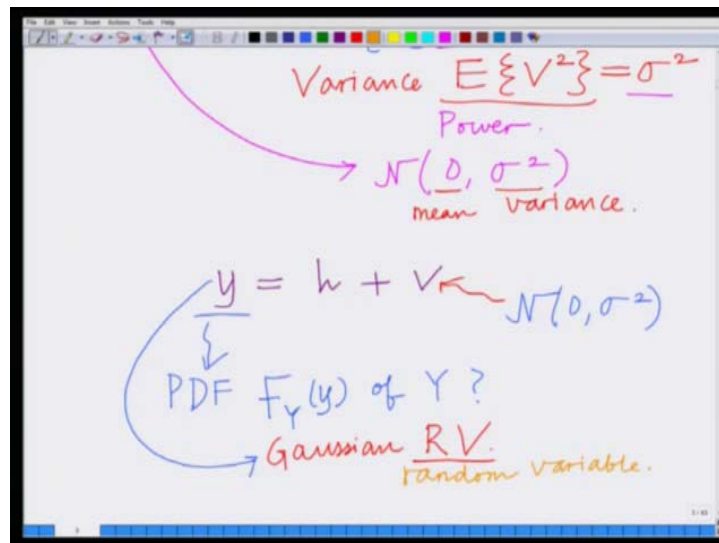 File Edit View Insert Actions Tools Help
Variance E{V²} = σ²
Power.
N(0, σ²)
mean variance.
y = h + V N(0, σ²)
PDF F_Y(y) of Y ?
Gaussian RV.
random variable.